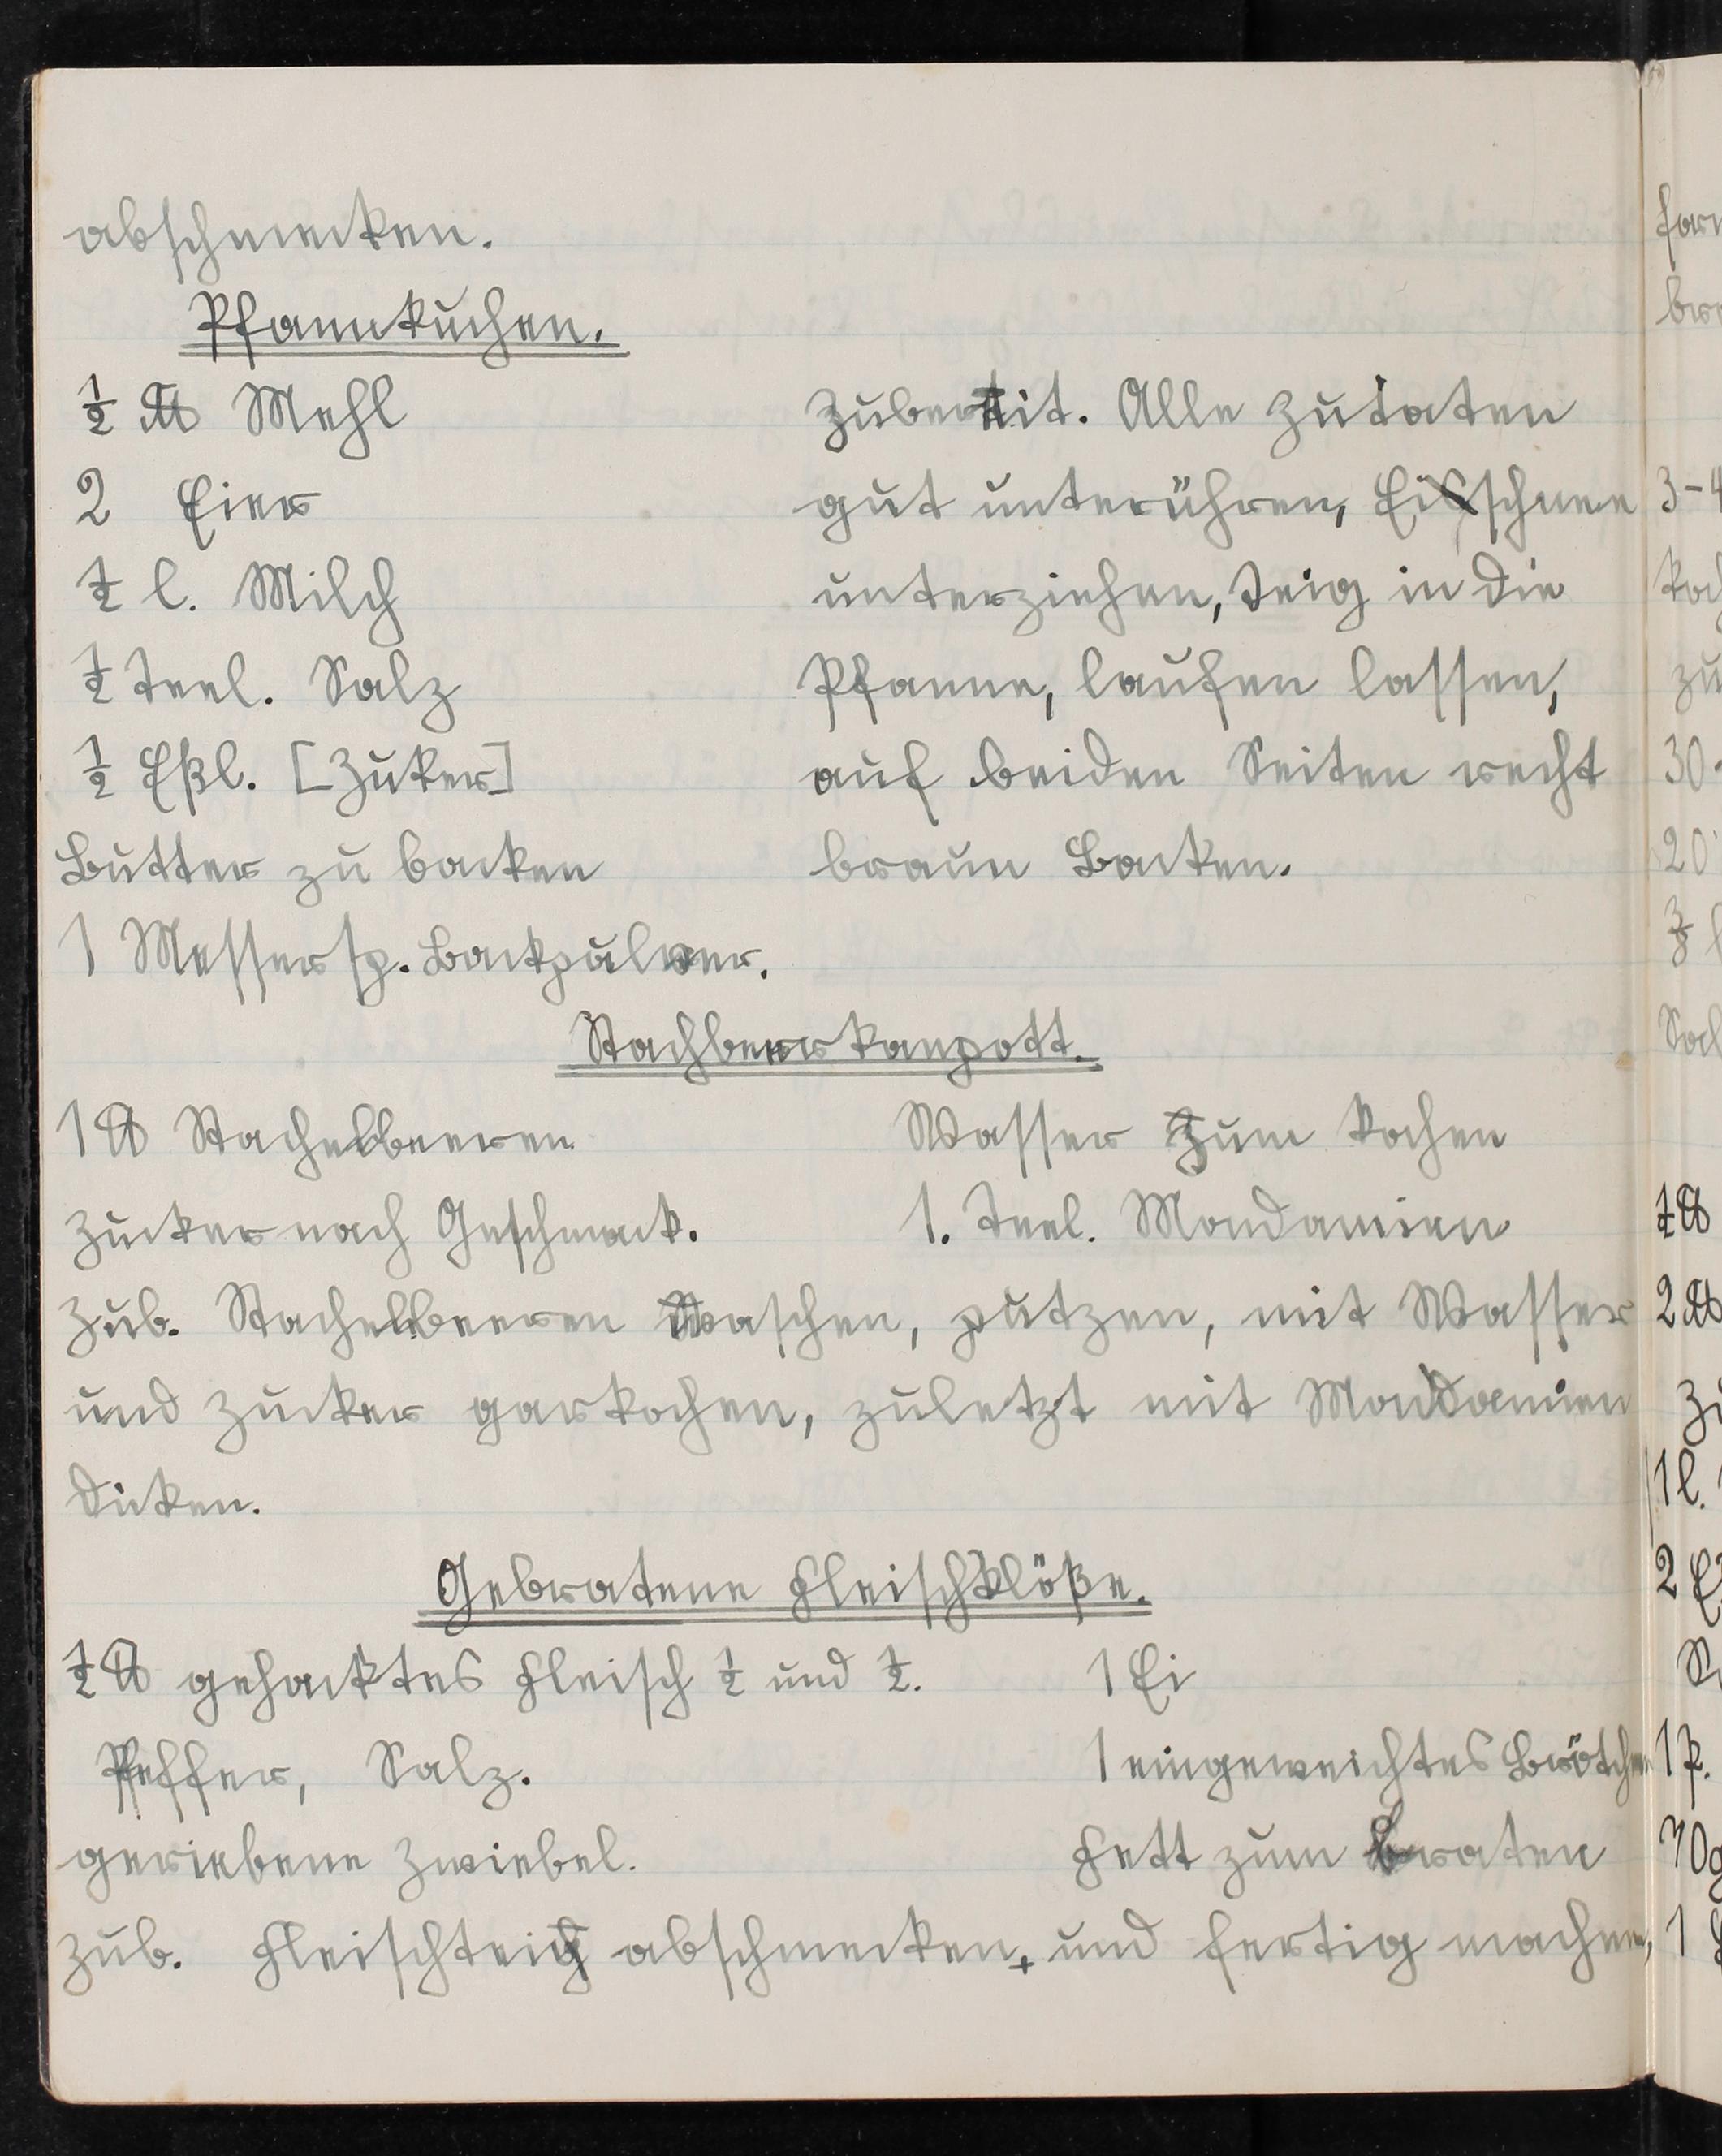 abschmecken.
Pfannkuchen.
½ ℔ Mehl
2 Eier
½ l. Milch
½ Teel. Salz
½ Eßl. [Zuker]
Butter zu backen
1 Messersp. Backpulver.
Zubertit. Alle Zutaten
gut unterühren, Eischnee
unterziehen, Teig in die
Pfanne, laufen lassen,
auf beiden Seiten recht
braun Backen.
Stachbeerkompott.
1 ℔ Stachelbeeren
Zucker nach Geschmack.
Wasser zum Kochen
1. Teel. Mondamien
Zub. Stachelbeeren Waschen, putzen, mit Wasser
und Zucker garkochen, zuletzt mit Mondamien
dicken.
Gebratene Fleischklöße.
½ ℔ gehacktes Fleisch ½ und ½.
Pfeffer, Salz.
geriebene Zwiebel.
1 Ei
1 eingeweichtes Brötchen
Fett zum braten
Zub. Fleischteig abschmecken, und fertig machen,
3-4
30
20
½ ℔
2 ℔
1 l.
2
1 P.
30g
1